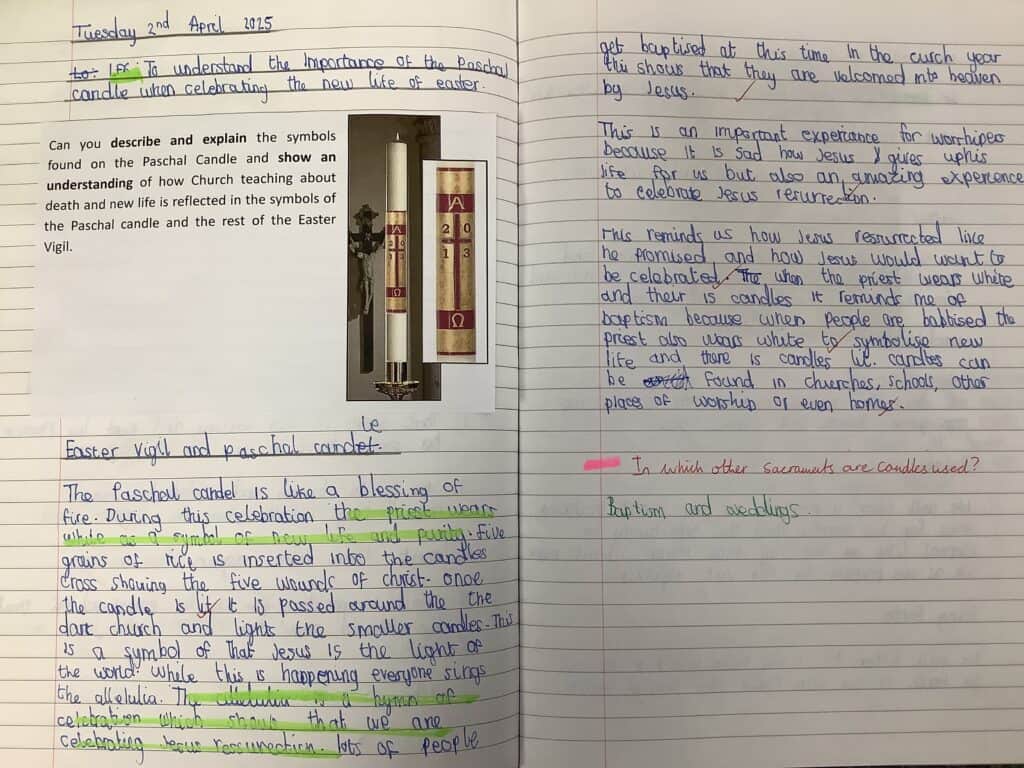 Tuesday 2nd April 2025
to: LF: To understand the importance of the Paschal
candle when celebrating the new life of easter.
Can you describe and explain the symbols
found on the Paschal Candle and show an
understanding of how Church teaching about
death and new life is reflected in the symbols of
the Paschal candle and the rest of the Easter
Vigil.
A
2 0
1 3
Ω
A
2 0
1 3
Ω
Easter Vigil and paschal candet. le
The Paschal candel is like a blessing of
fire. During this celebration the priest wears
white as a symbol of new life and purity. Five
grains of rice is inserted into the candles
cross showing the five wounds of christ. once
the candle is lit it is passed around the the
dark church and lights the smaller candles. This
is a symbol of that Jesus is the light of
the world. while this is happening everyone sings
the allelulia. The allelulia is a hymn of
celebration which shows that we are
celebrating Jesus ressurection. lots of people
get baptised at this time in the curch year
this shows that they are welcomed into heaven
by Jesus.
This is an important experiance for worshipers
because it is sad how Jesus gives up his
life for us but also an amazing experience
to celebrate Jesus resurrection.
This reminds us how Jesus resurrected like
he promised and how Jesus would want to
be celebrated. The when the priest wears white
and their is candles it reminds me of
baptism because when people are babtised the
priest also wears white to symbolise new
life and there is candles lit. candles can
be found in churches, schools, other
places of worship or even homes.
In which other sacraments are candles used?
Baptism and weddings.